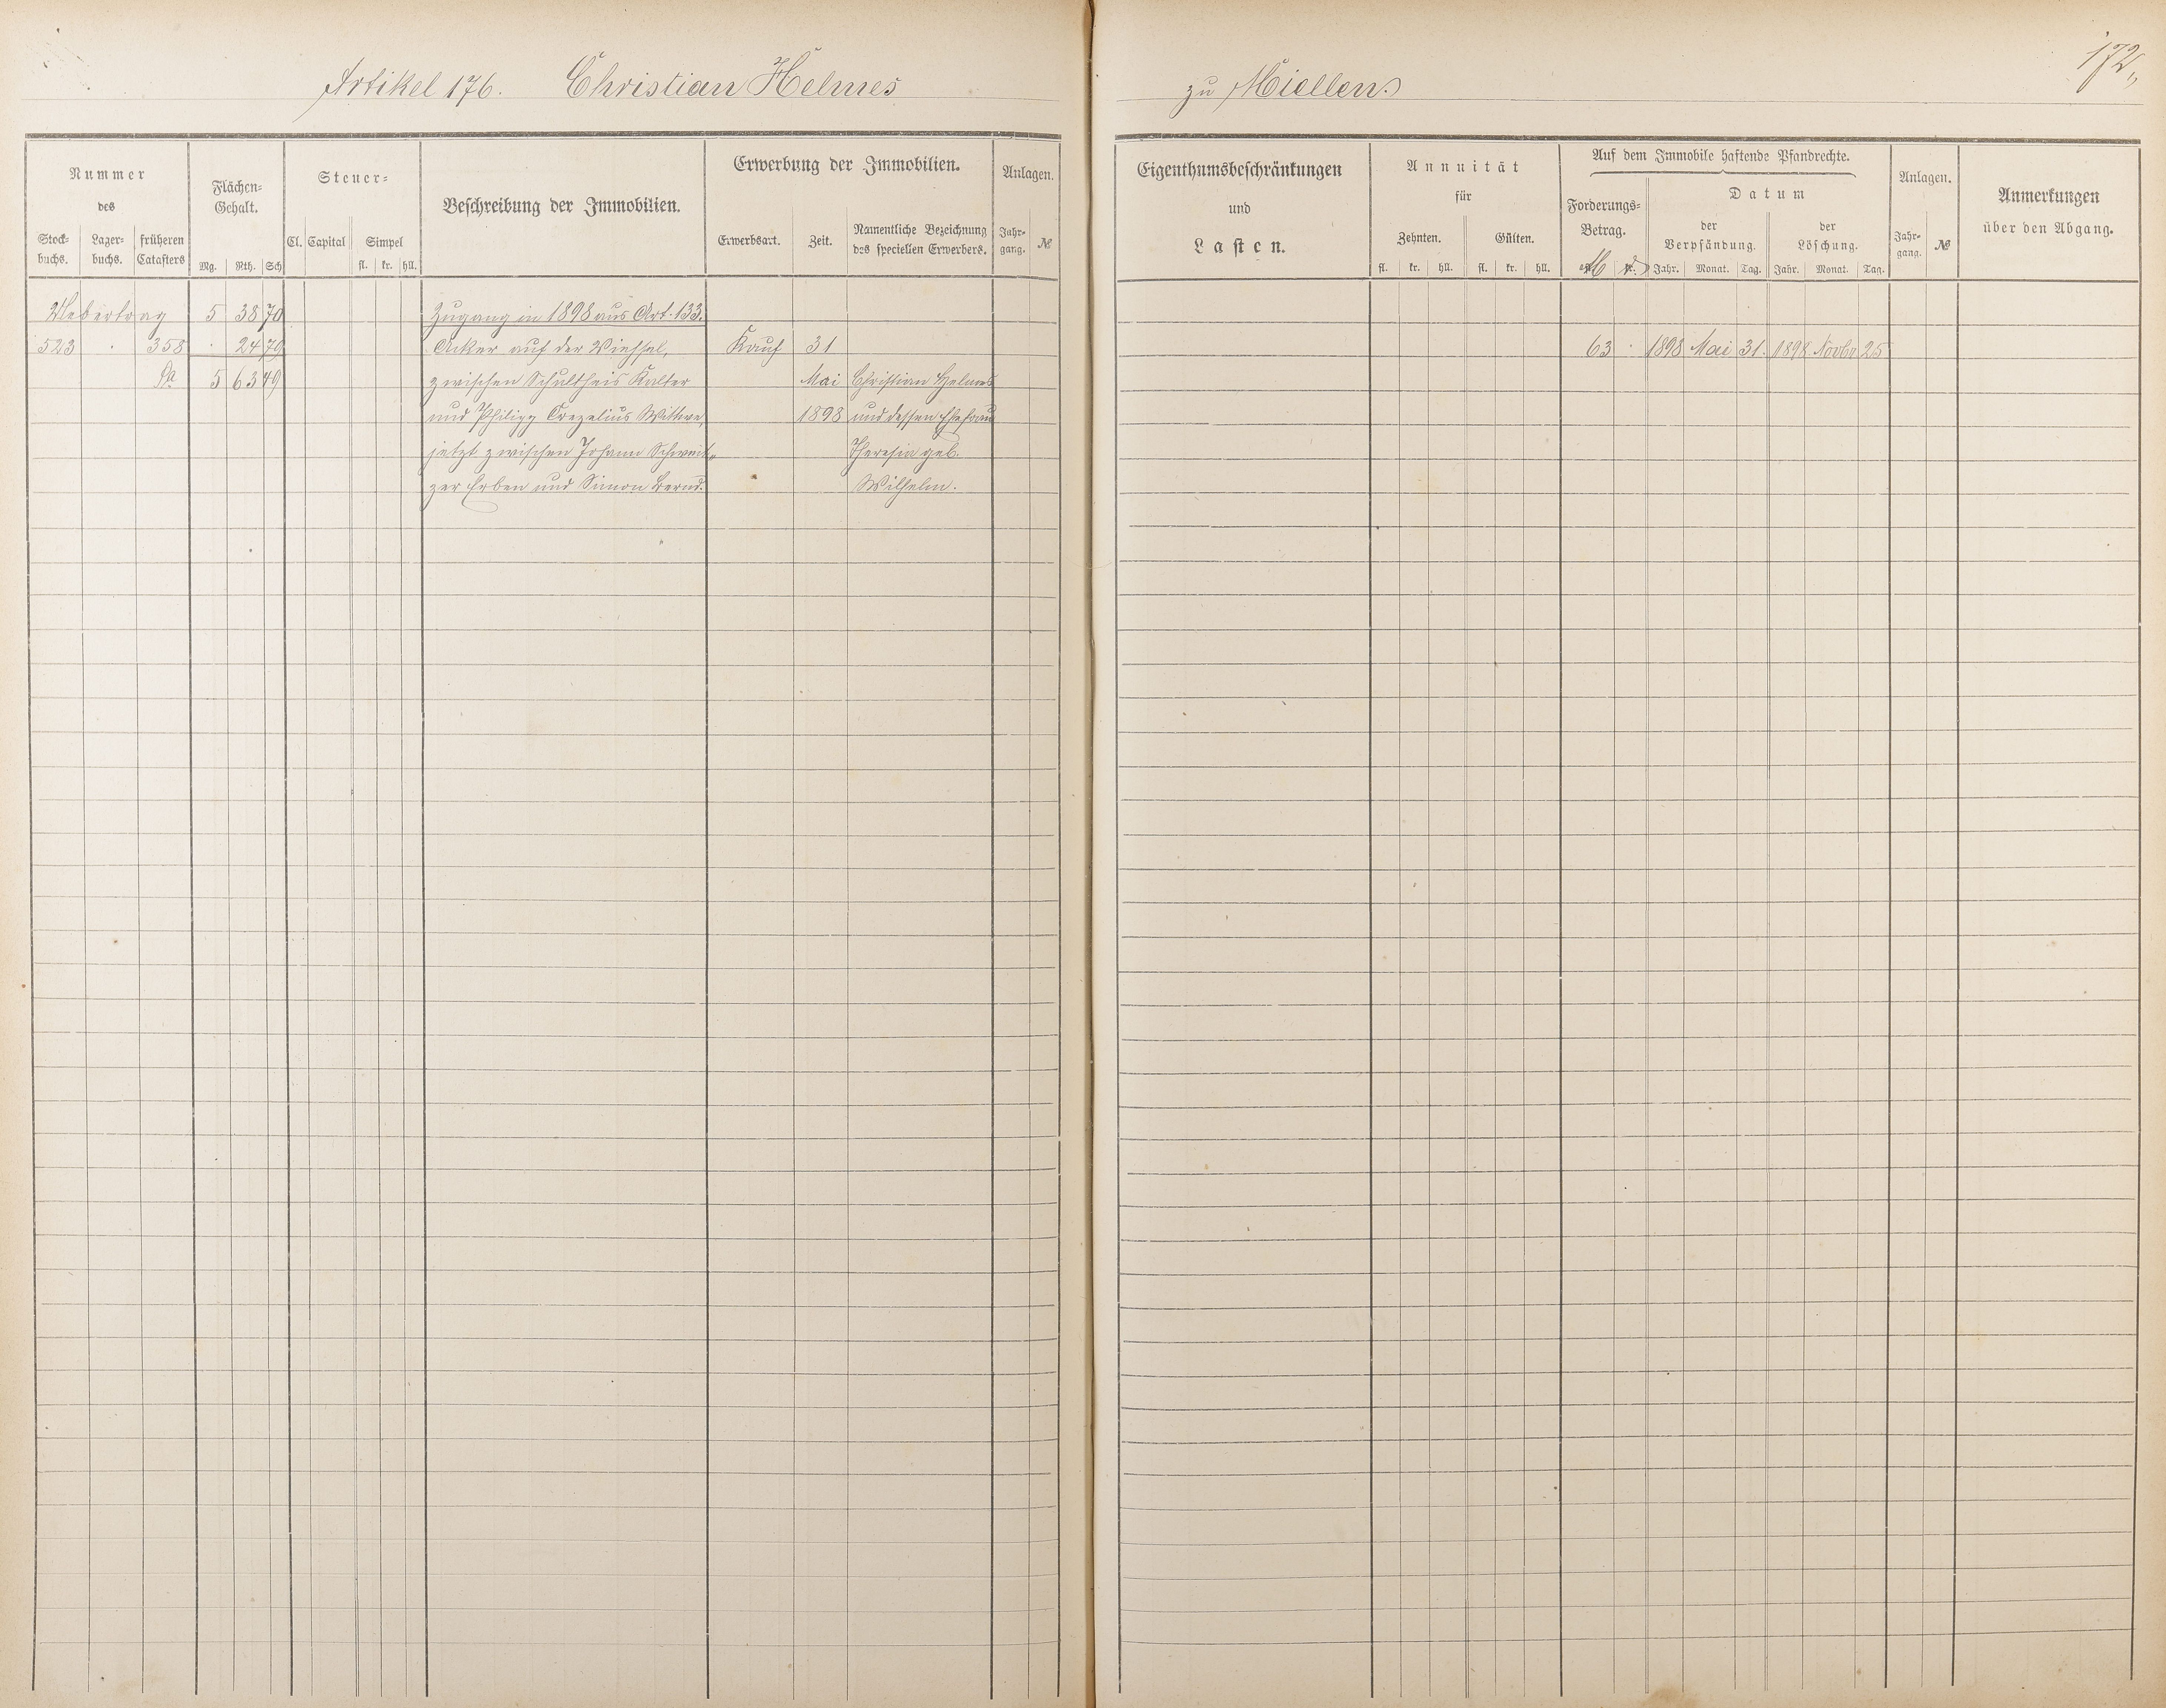 Artikel 176. Christian Helmes zu Miellen.
172
Nummer des
Stock-buchs. Lager-buchs. früheren Catasters
Flächen-Gehalt.
Mg. Rth. Sch
Steuer-
Cl. Capital Simpel
fl. kr. hll.
Beschreibung der Immobilien.
Erwerbung der Immobilien.
Erwerbsart. Zeit. Namentliche Bezeichnung des speciellen Erwerbers.
Anlagen.
Jahr-gang. №
Eigenthumsbeschränkungen
und
Lasten.
Annuität
für
Zehnten. Gülten.
fl. kr. hll. fl. kr. hll.
Auf dem Immobile haftende Pfandrechte.
Forderungs-Betrag.
Datum
der Verpfändung. der Löschung.
Jahr. Monat. Tag. Jahr. Monat. Tag.
Anlagen.
Jahr-gang. №
Anmerkungen
über den Abgang.
Uebertrag 5 38 70 Zugang in 1898 aus Art. 133.
523 . 358 . 24 79 Acker auf der Viehsal, Kauf 31 63 . 1898 Mai 31. 1898 Novbr 25
Sa 5 63 49 zwischen Schultheis Kalter Mai Christian Helmes
und Philipp Crezelius Wittwe, 1898 und dessen Ehefrau
jetzt zwischen Johann Schweit- Theresia geb.
zer Erben und Simon Bernd. Wilhelm.